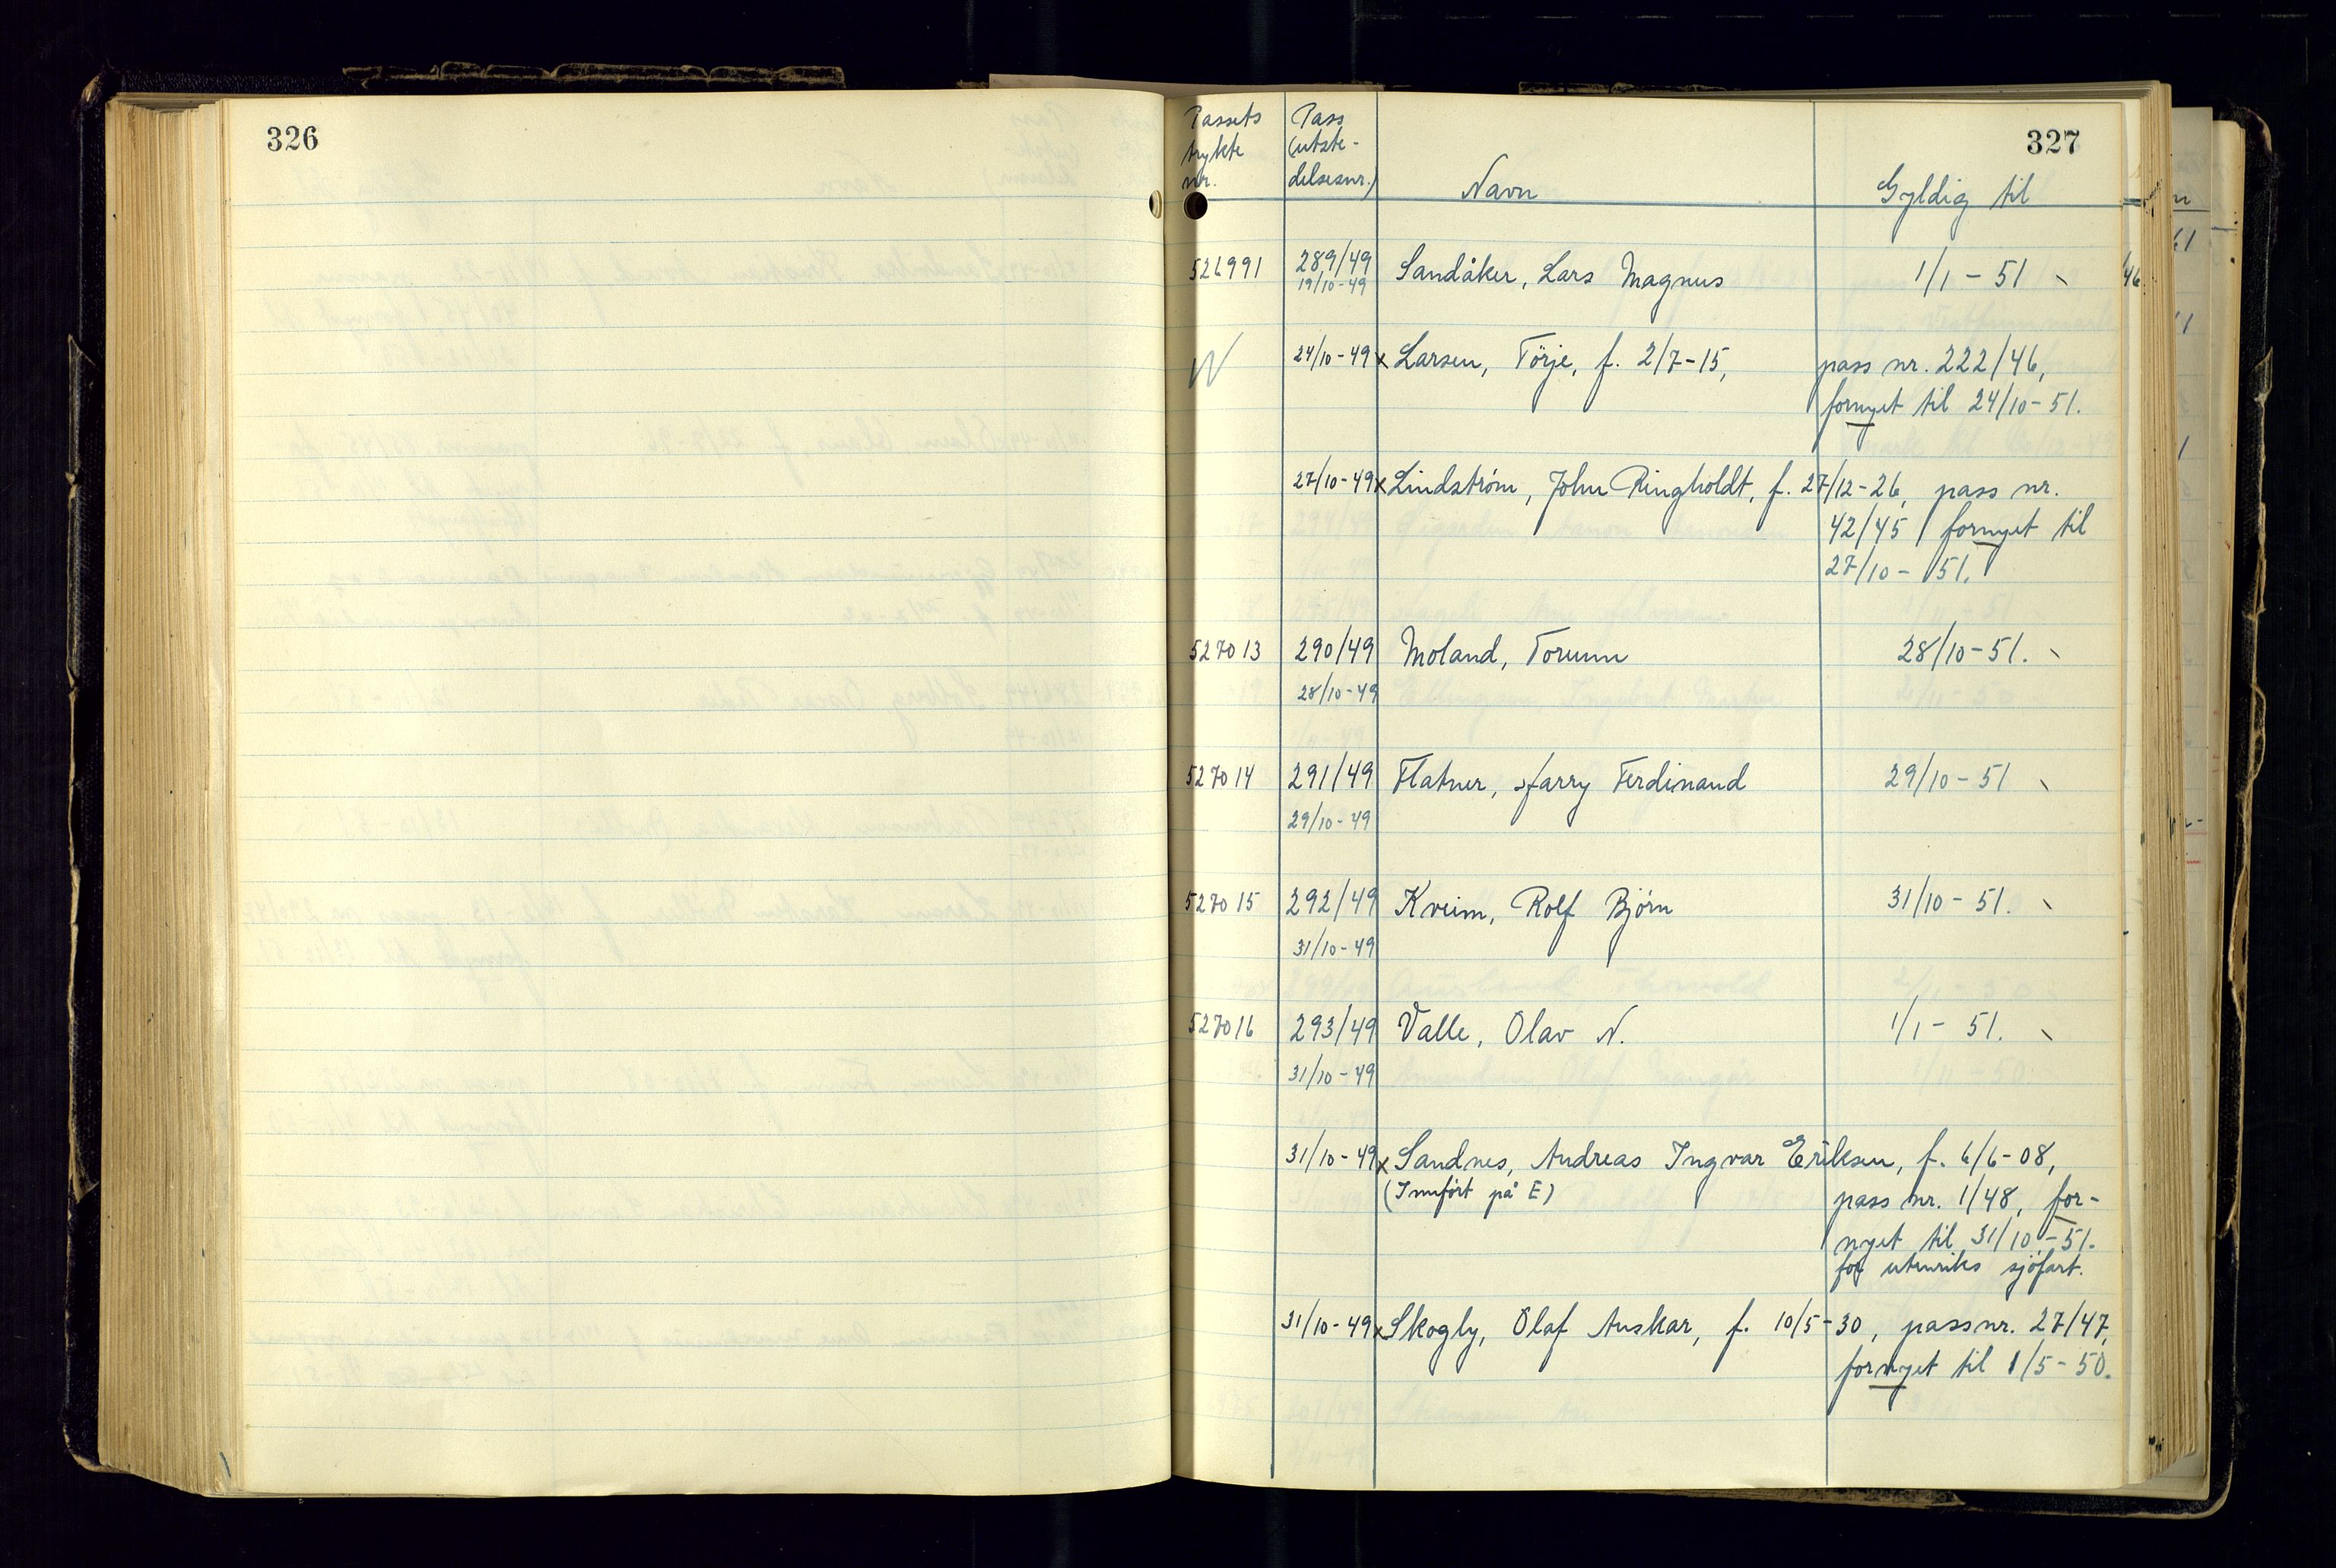 326
327
Passets trykte nr. Pass (utste-delsesnr.) Navn Gyldig til
526991 289/49 Sandåker, Lars Magnus 1/1 - 51
19/10-49
24/10-49 x Larsen, Törje, f. 2/7-15, pass nr. 222/46,
fornyet til 24/10-51.
27/10-49 x Lindstrøm, John Ringholdt, f. 27/12-26, pass nr.
42/45, fornyet til
27/10-51.
527013 290/49 Moland, Torunn 28/10-51.
28/10-49
527014 291/49 Flatner, Harry Ferdinand 29/10-51
29/10-49
527015 292/49 Kveim, Rolf Bjørn 31/10-51.
31/10-49
527016 293/49 Valle, Olav N. 1/1 - 51.
31/10-49
31/10-49 x Sandnes, Andreas Ingvar Eriksen, f. 6/6-08,
(Innført på E) pass nr. 1/48, for-
nyet til 31/10-51.
for utenriks sjöfart.
31/10-49 x Skogly, Olaf Anskar, f. 10/5-30, passnr. 27/47,
fornyet til 1/5-50.